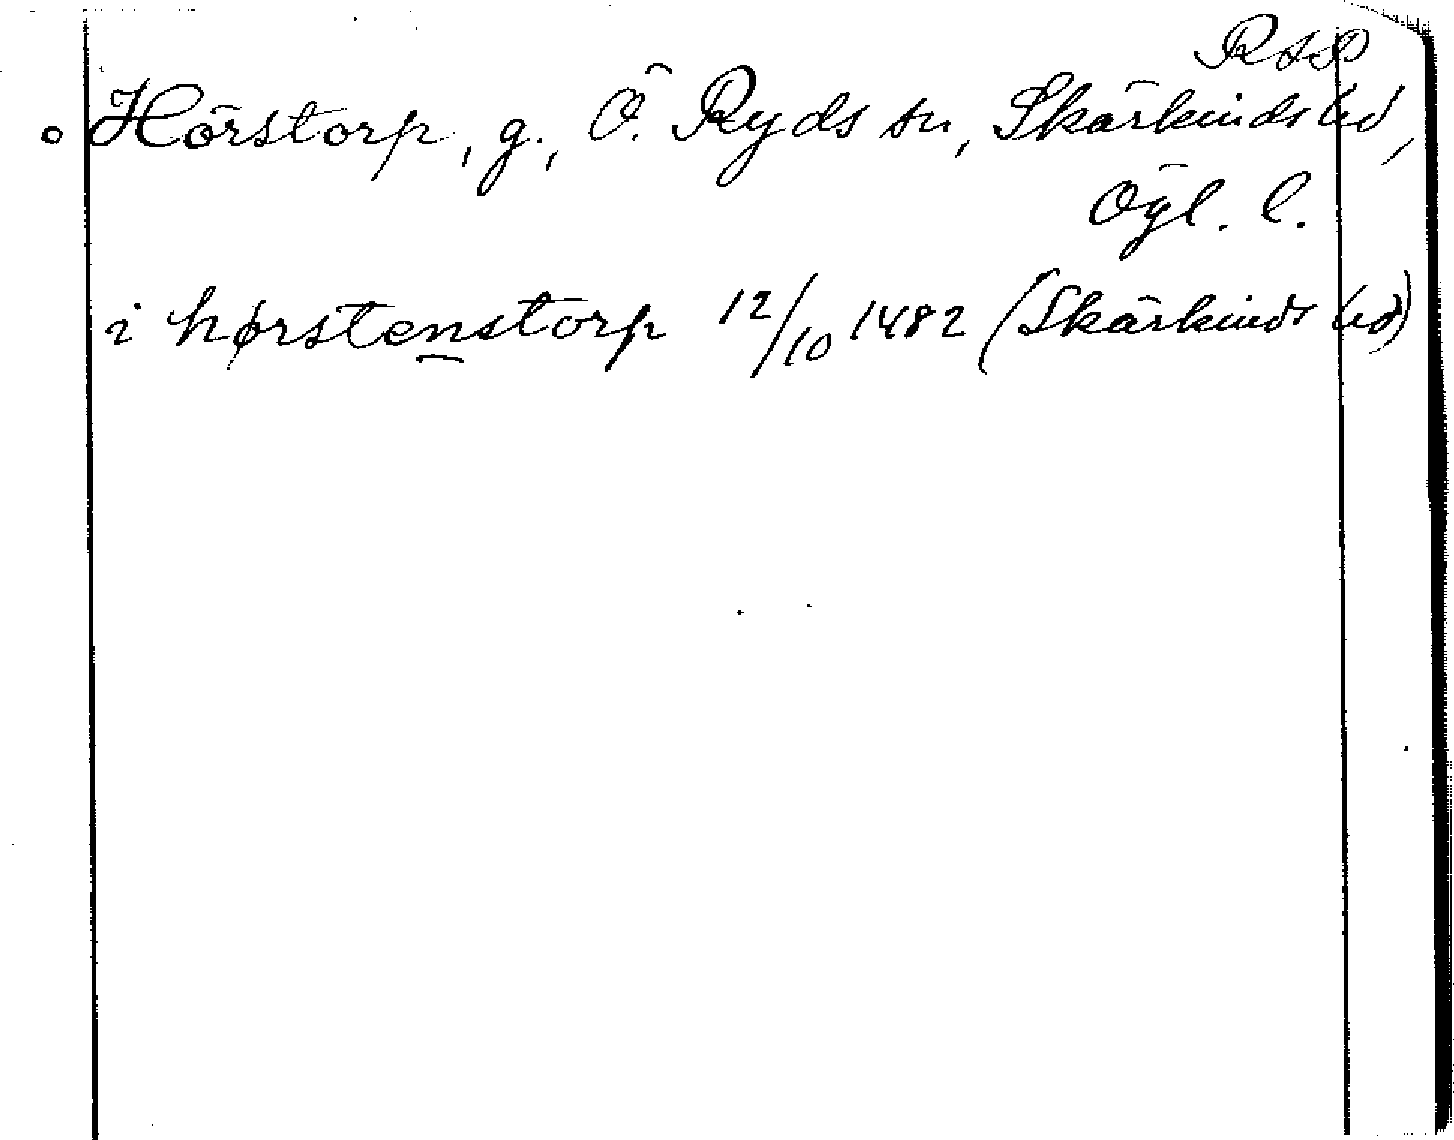 RAP
o Hörstorp, g., Ö. Ryds sn, Skärkinds hd,
Ögl. l.
i hørstenstorp 12/10 1482 (Skärkinds hd)